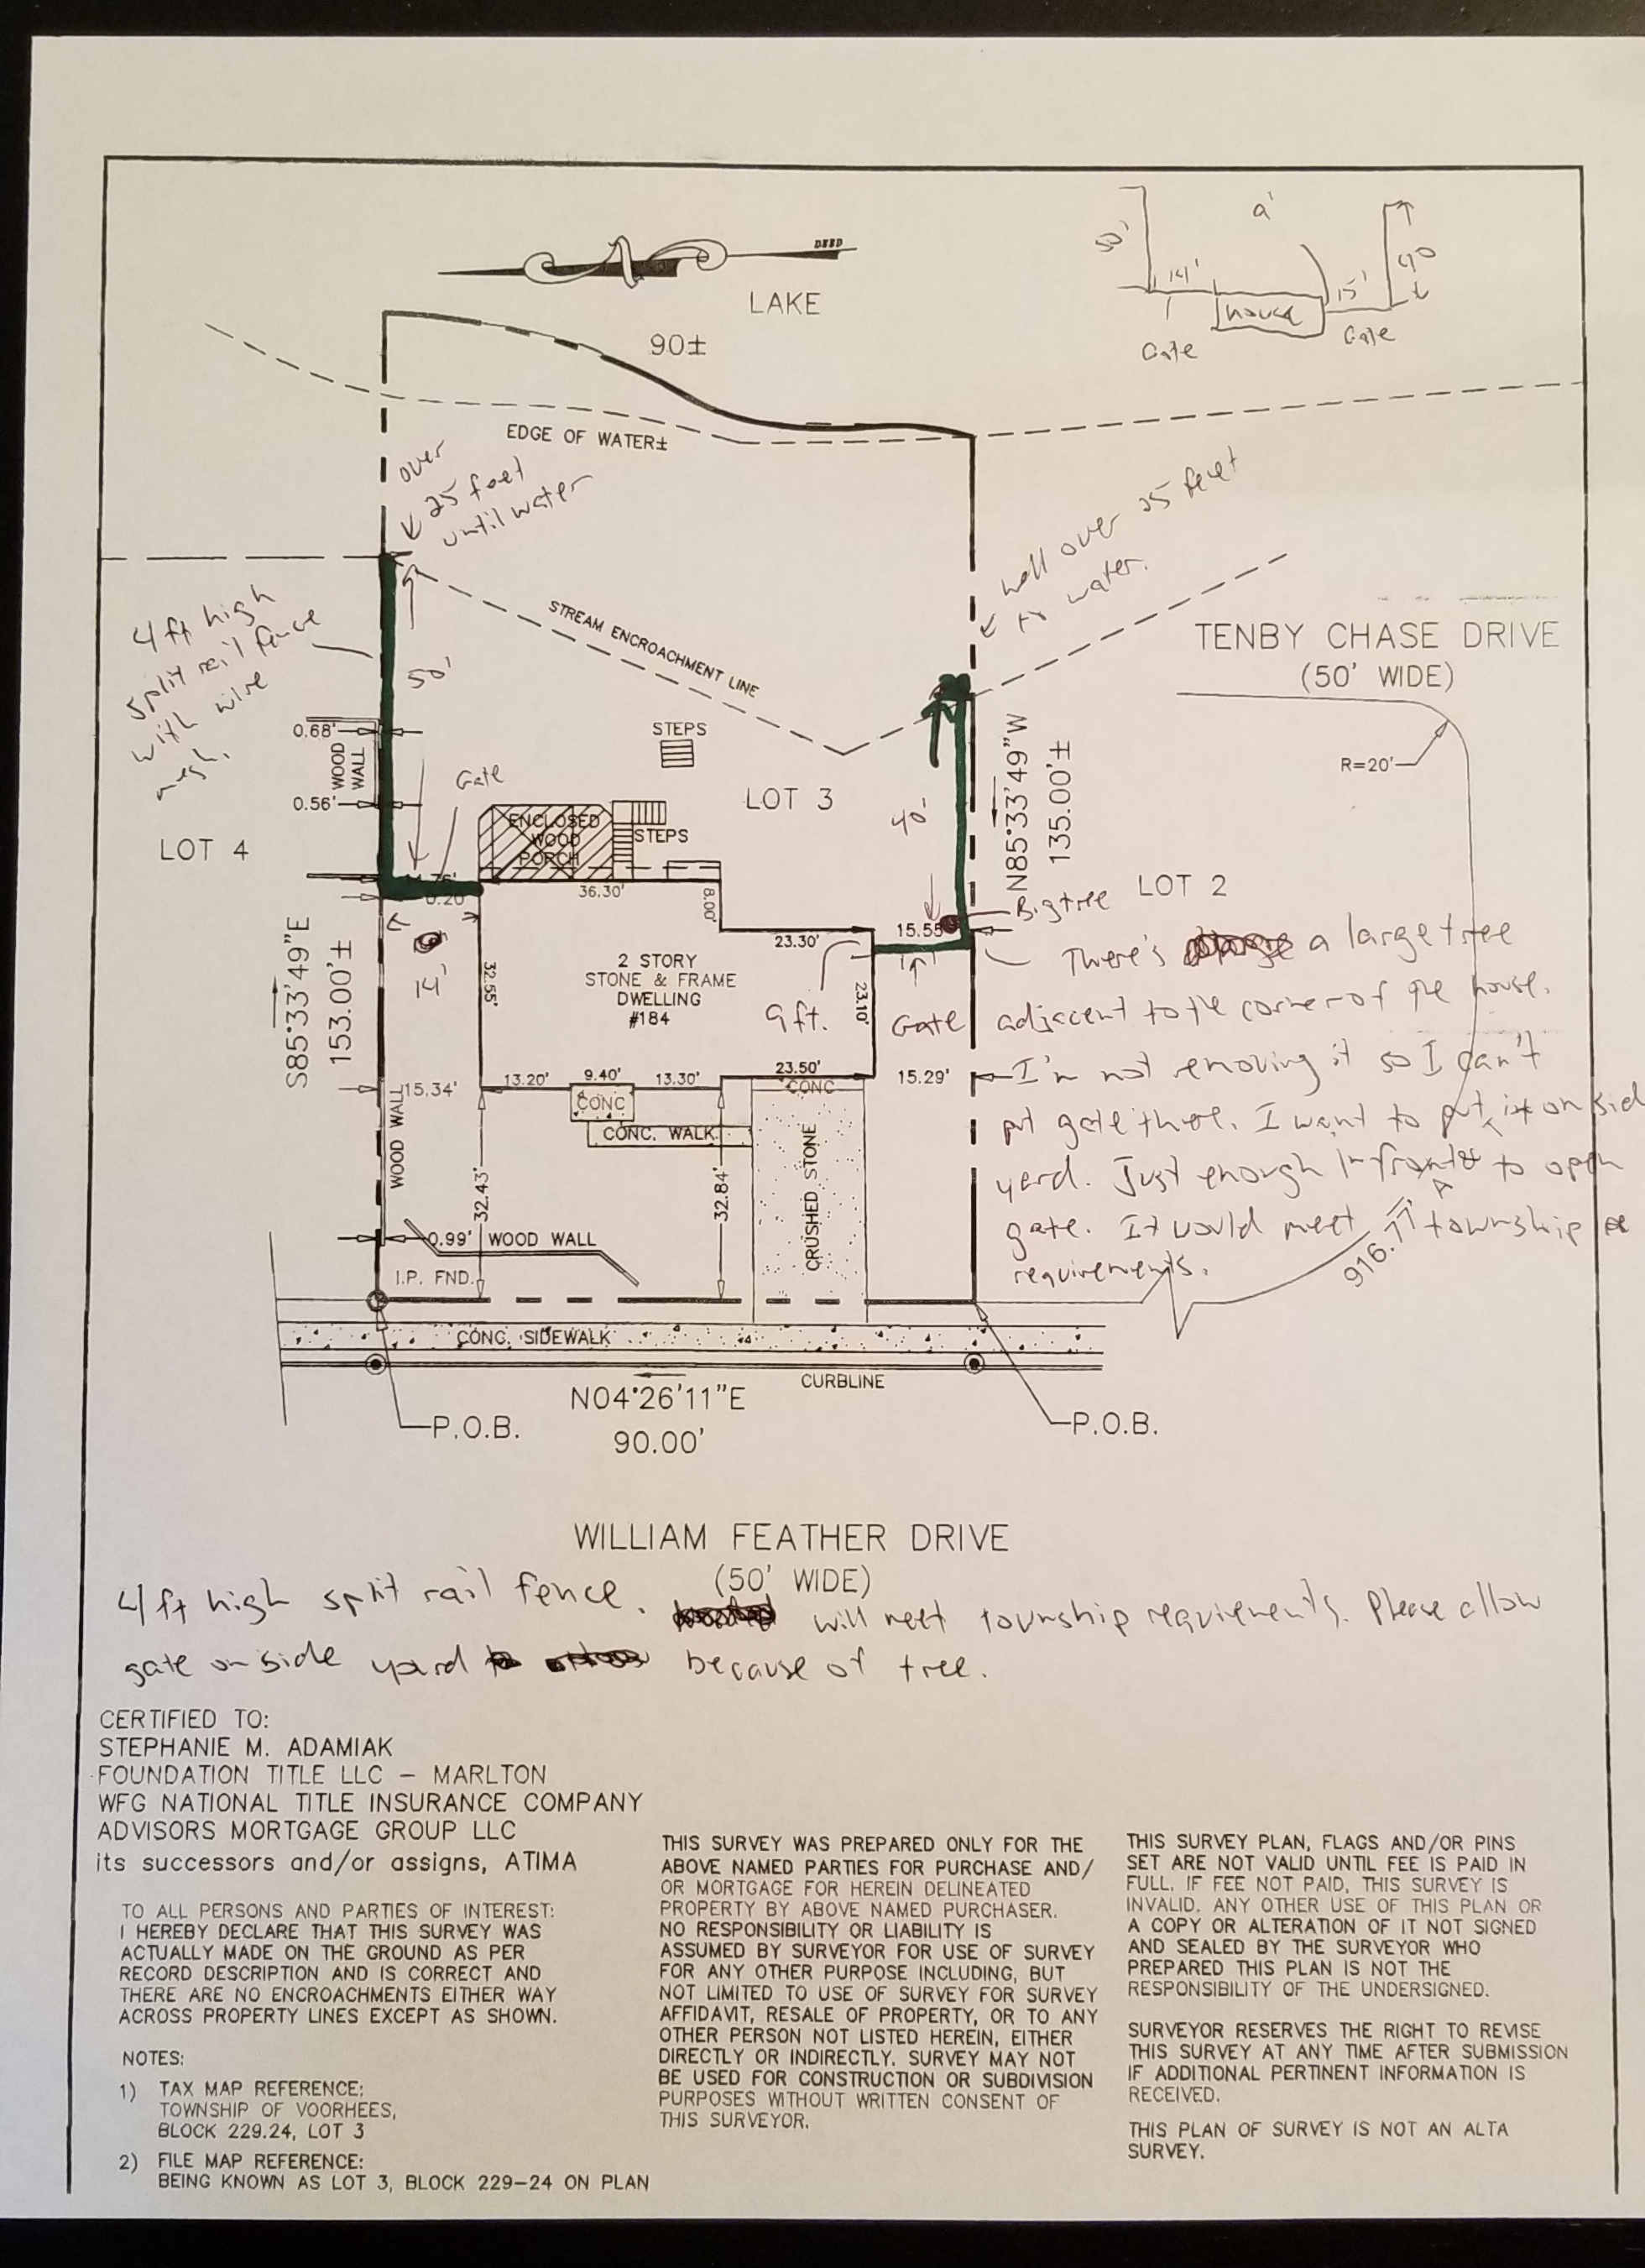 DEED
LAKE
90±
50'
14'
house
15'
40
Gate
Gate
EDGE OF WATER±
over
25 feet
until water
well over 25 feet
to water.
4 ft high
split rail fence
with wire
mesh.
50'
STREAM ENCROACHMENT LINE
TENBY CHASE DRIVE
(50' WIDE)
R=20'
0.68'
WOOD WALL
0.56'
Gate
STEPS
ENCLOSED
WOOD
PORCH
STEPS
LOT 3
40'
N85°33'49"W
135.00'±
LOT 4
LOT 2
Big tree
0.20'
36.30'
8.00'
23.30'
15.55'
14'
S85°33'49"E
153.00'±
32.55'
2 STORY
STONE & FRAME
DWELLING
#184
9 ft.
23.10'
Gate
There's a large tree
adjacent to the corner of the house.
I'm not removing it so I can't
put gate there. I want to put it on side
yard. Just enough in front to open
gate. It would meet township
requirements.
916.77'
15.34'
13.20'
9.40'
13.30'
23.50'
15.29'
CONC
CONC
CONC. WALK
WOOD WALL
32.43'
32.84'
CRUSHED STONE
0.99'
WOOD WALL
I.P. FND.
CONC. SIDEWALK
CURBLINE
N04°26'11"E
90.00'
P.O.B.
P.O.B.
WILLIAM FEATHER DRIVE
(50' WIDE)
4 ft high split rail fence. will meet township requirements. Please allow
gate on side yard because of tree.
CERTIFIED TO:
STEPHANIE M. ADAMIAK
FOUNDATION TITLE LLC – MARLTON
WFG NATIONAL TITLE INSURANCE COMPANY
ADVISORS MORTGAGE GROUP LLC
its successors and/or assigns, ATIMA
TO ALL PERSONS AND PARTIES OF INTEREST:
I HEREBY DECLARE THAT THIS SURVEY WAS
ACTUALLY MADE ON THE GROUND AS PER
RECORD DESCRIPTION AND IS CORRECT AND
THERE ARE NO ENCROACHMENTS EITHER WAY
ACROSS PROPERTY LINES EXCEPT AS SHOWN.
NOTES:
1) TAX MAP REFERENCE:
TOWNSHIP OF VOORHEES,
BLOCK 229.24, LOT 3
2) FILE MAP REFERENCE:
BEING KNOWN AS LOT 3, BLOCK 229–24 ON PLAN
THIS SURVEY WAS PREPARED ONLY FOR THE
ABOVE NAMED PARTIES FOR PURCHASE AND/
OR MORTGAGE FOR HEREIN DELINEATED
PROPERTY BY ABOVE NAMED PURCHASER.
NO RESPONSIBILITY OR LIABILITY IS
ASSUMED BY SURVEYOR FOR USE OF SURVEY
FOR ANY OTHER PURPOSE INCLUDING, BUT
NOT LIMITED TO USE OF SURVEY FOR SURVEY
AFFIDAVIT, RESALE OF PROPERTY, OR TO ANY
OTHER PERSON NOT LISTED HEREIN, EITHER
DIRECTLY OR INDIRECTLY. SURVEY MAY NOT
BE USED FOR CONSTRUCTION OR SUBDIVISION
PURPOSES WITHOUT WRITTEN CONSENT OF
THIS SURVEYOR.
THIS SURVEY PLAN, FLAGS AND/OR PINS
SET ARE NOT VALID UNTIL FEE IS PAID IN
FULL. IF FEE NOT PAID, THIS SURVEY IS
INVALID. ANY OTHER USE OF THIS PLAN OR
A COPY OR ALTERATION OF IT NOT SIGNED
AND SEALED BY THE SURVEYOR WHO
PREPARED THIS PLAN IS NOT THE
RESPONSIBILITY OF THE UNDERSIGNED.
SURVEYOR RESERVES THE RIGHT TO REVISE
THIS SURVEY AT ANY TIME AFTER SUBMISSION
IF ADDITIONAL PERTINENT INFORMATION IS
RECEIVED.
THIS PLAN OF SURVEY IS NOT AN ALTA
SURVEY.